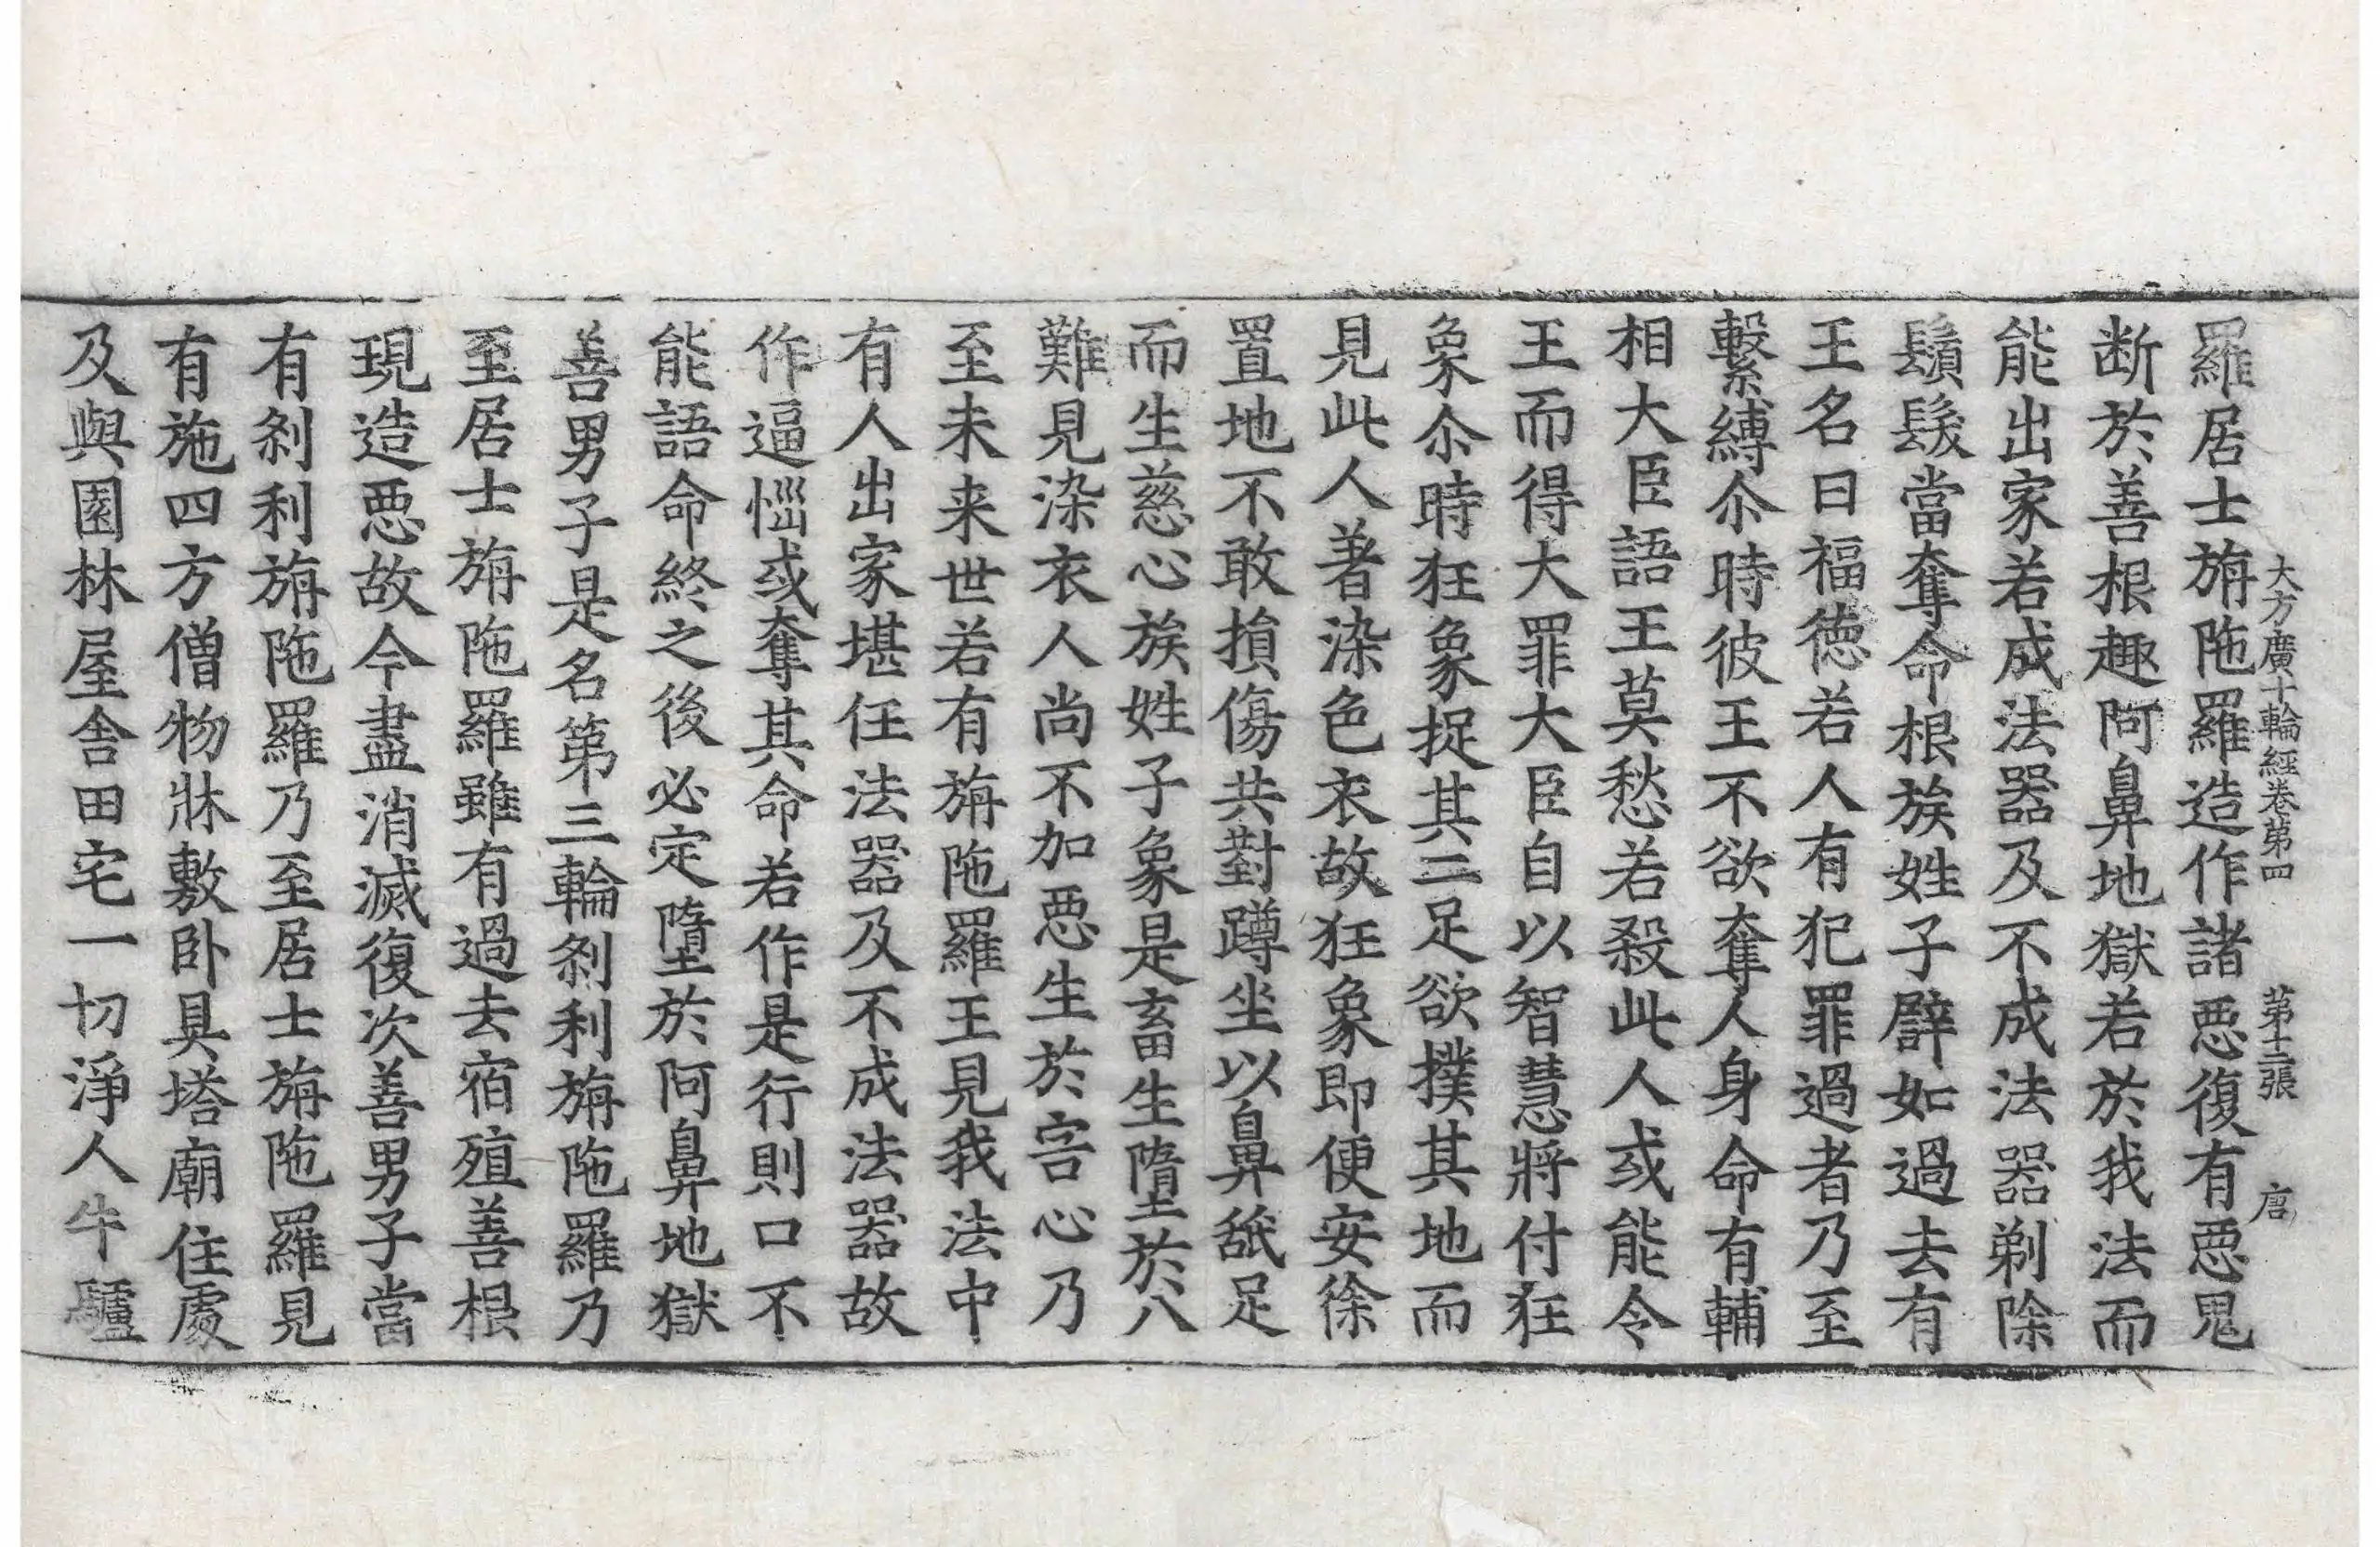 大方廣十輪經卷第四 第十二張 唐
羅居士旃陁羅造作諸惡復有惡鬼
断於善根趣阿鼻地獄若於我法而
能出家若成法器及不成法器剃除
鬚髮當奪命根族姓子譬如過去有
王名曰福德若人有犯罪過者乃至
繫縛尒時彼王不欲奪人身命有輔
相大臣語王莫愁若殺此人或能令
王而得大罪大臣自以智慧將付狂
象尒時狂象捉其二足欲撲其地而
見此人著染色衣故狂象即便安徐
置地不敢損傷共對蹲坐以鼻舐足
而生慈心族姓子象是畜生墮於八
難見染衣人尚不加惡生於害心乃
至未来世若有旃陁羅王見我法中
有人出家堪任法器及不成法器故
作逼惱或奪其命若作是行則口不
能語命終之後必定墮於阿鼻地獄
善男子是名第三輪刹利旃陁羅乃
至居士旃陁羅雖有過去宿殖善根
現造惡故今盡消滅復次善男子當
有刹利旃陁羅乃至居士旃陁羅見
有施四方僧物牀敷卧具塔廟住處
及與園林屋舍田宅一切淨人牛驢